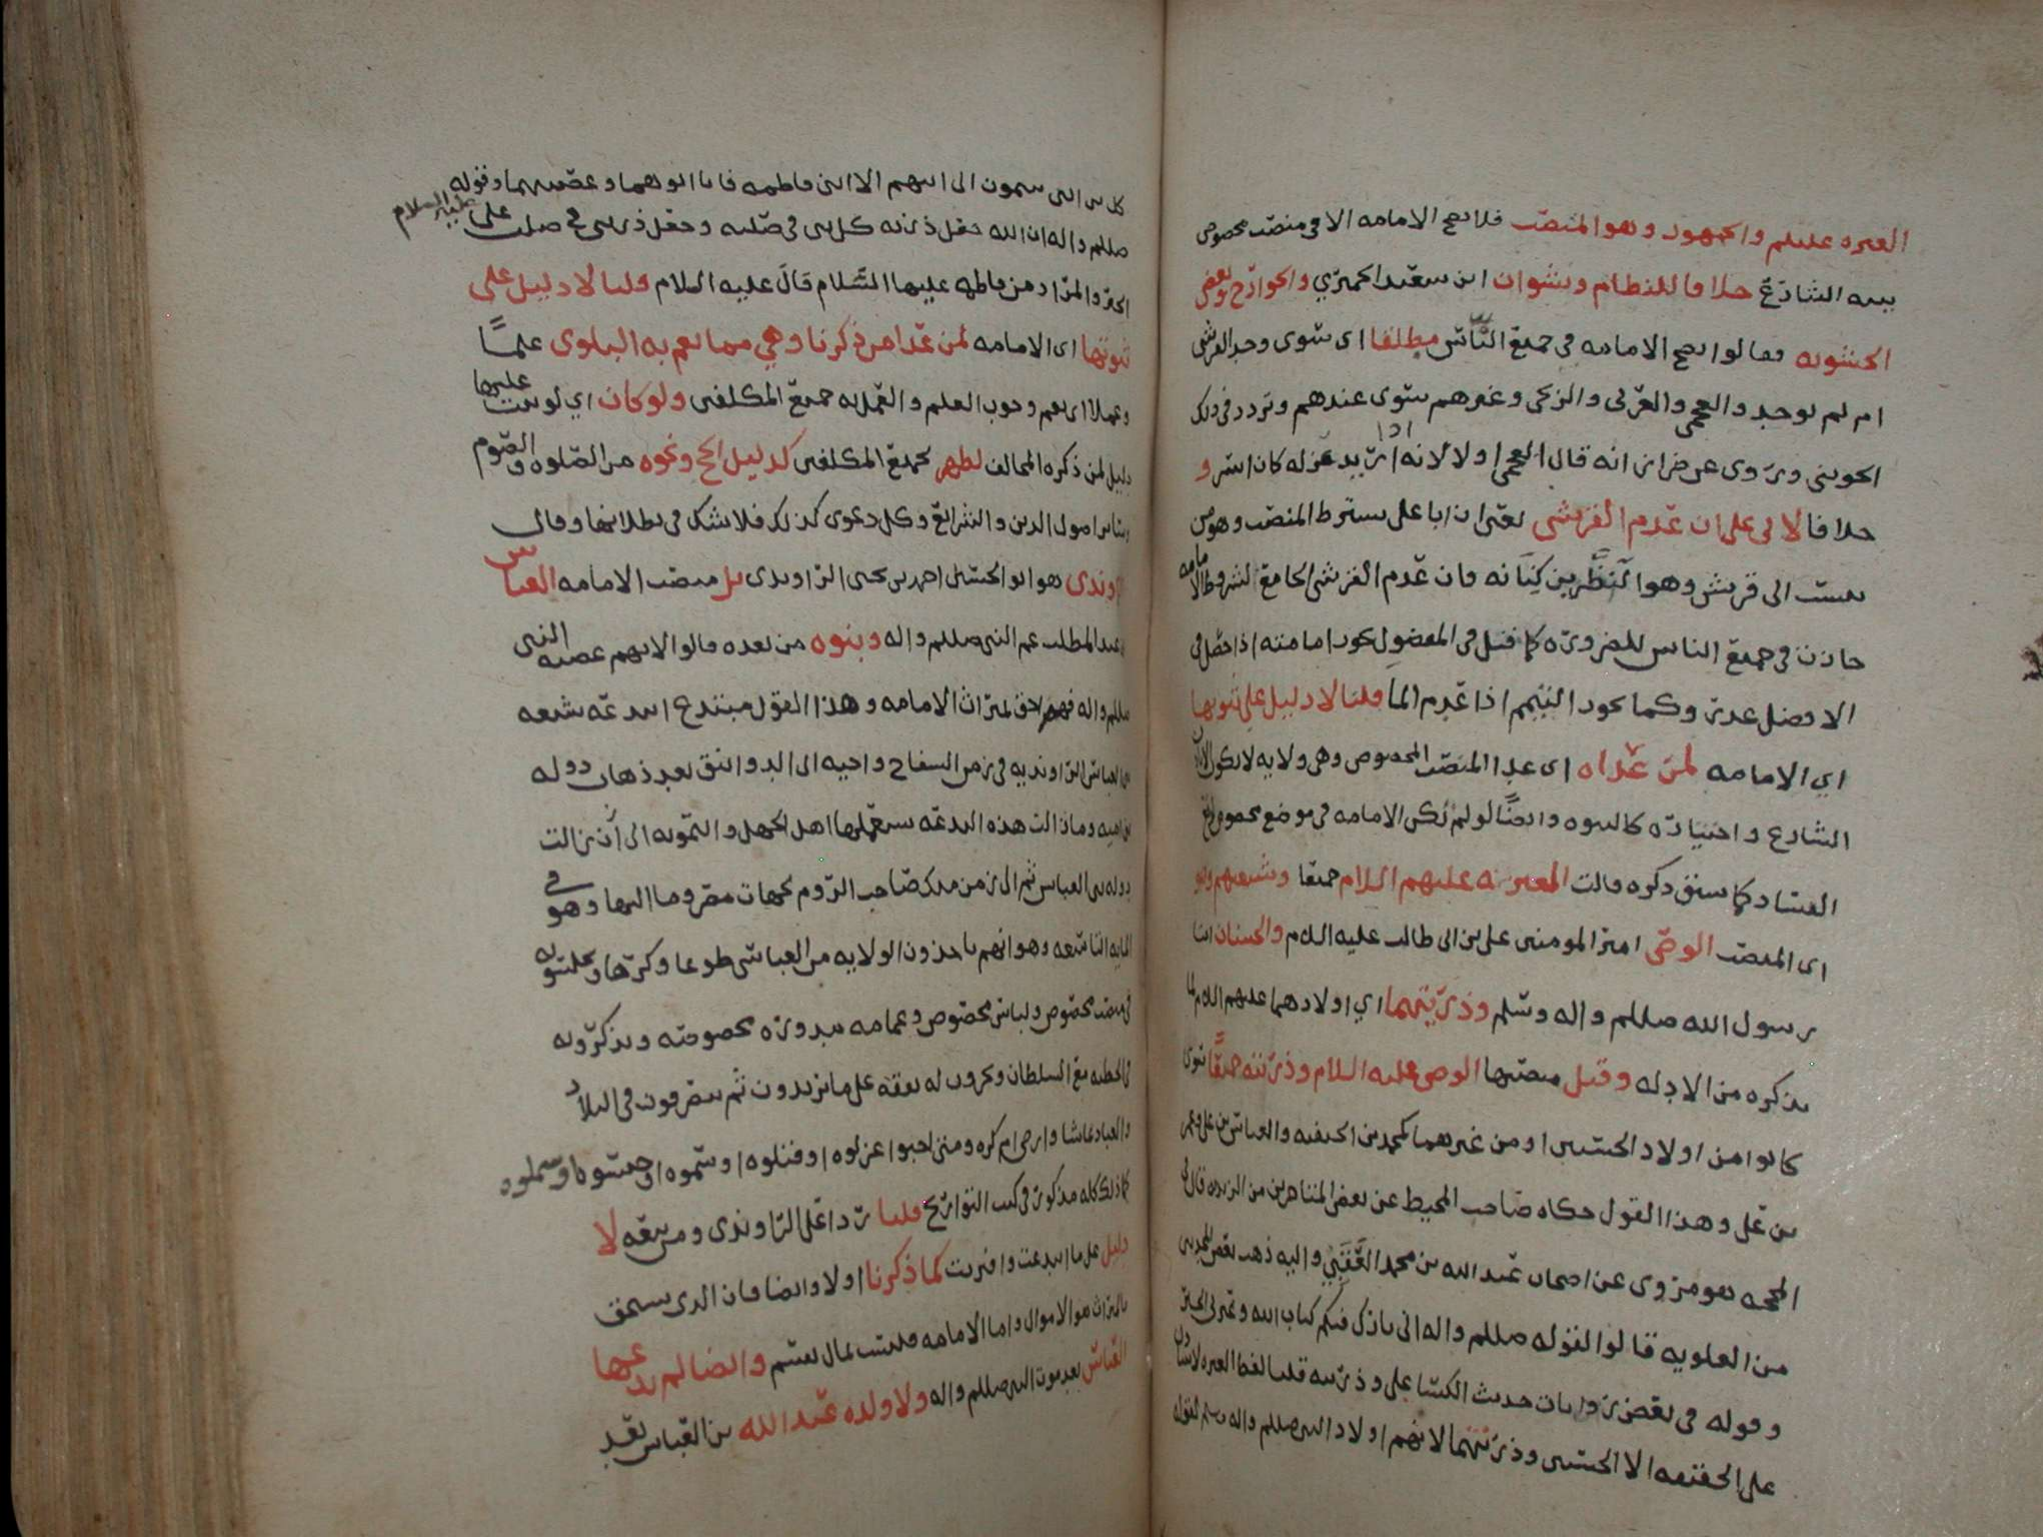 العتره عليلم والجمهور وهو المنصب فلا تصح الامامه الا في منصب مخصوص
بينه الشارع خلافا للنظام ونشوان ابن سعيد الحميري والخوارج وبعض
الحشويه فقالوا تصح الامامه في جميع الناس مطلقا اي سوى وجد القرشي
ام لم يوجد والعجمي والعربي والزنجي وغيرهم سوى عندهم وتردد في ذلك
الجويني وروى عن ضرار انه قال العجمي اولا لانه اذا اريد عزله كان ايسر و
خلافا لابي علي ان عدم القرشي يعني ان ابا علي يشترط المنصب وهو من
ينسب الى قريش وهو النضر بن كنانه فان عدم القرشي الجامع لشروط الامامه
جازت في جميع الناس للضروره كما قيل في المفضول تجوز امامته اذا حصل في
الافضل عذر وكما يجوز التيمم اذا عدم الما قلنا لا دليل على ثبوتها
اي الامامه لمن عداه اي عدا المنصب المخصوص وهي ولايه لا تكون الا باذن
الشارع واختياره كالنبوه وايضًا لو لم تكن الامامه في موضع مخصوص لوقع
الفساد كما سبق ذكره قالت العتره عليهم السلام جميعا وشيعتهم وهو
اي المنصب الوصي امير المومنين علي بن ابي طالب عليه السلم والحسنان ابنا
رسول الله صللم واله وسلم وذريتهما اي اولادهما عليهم السلم لما
نذكره من الادله وقيل منصبها الوصي عليه السلام وذريته جميعًا سوى
كانوا من اولاد الحسنين او من غيرهما كمحمد بن الحنفيه والعباس بن علي وعمر
بن علي وهذا القول حكاه صاحب المحيط عن بعض المتاخرين من الزيديه قال في
المحجه هو مروي عن اصحاب عبد الله بن محمد العقبي واليه ذهب بعض المحدثين
من العلويه قالوا لقوله صللم واله اني تارك فيكم كتاب الله وعترتي الخبر
وقوله في بعض روايات حديث الكسا علي وذريته قلنا لفظ العتره لا يتناول
على الحقيقه الا الحسنين وذريتهما لانهم اولاد النبي صللم واله وسلم لقوله
كل بني انثى ينتمون الى ابيهم الا ابني فاطمه فانا ابوهما وعصبتهما وقوله
صللم واله ان الله جعل ذريه كل نبي في صلبه وجعل ذريتي في صلب علي عليه السلام
الخبر والمراد من فاطمه عليها السلام قال عليه السلام ولنا لا دليل على
ثبوتها اي الامامه لمن عدا من ذكرنا وهي مما تعم به البلوى علمًا
وعملا اي يعم وجوب العلم والعمل به جميع المكلفين ولو كان اي لو ثبت عليها
دليل لمن ذكره المخالف لظهر لجميع المكلفين كدليل الحج ونحوه من الصلوه والصوم
وساير اصول الدين والشرايع وكل دعوى كذلك فلا شك في بطلانها وقال
الراوندي هو ابو الحسين احمد بن يحيى الراوندي بل منصب الامامه العباس
بن عبد المطلب عم النبي صللم واله وبنوه من بعده قالوا لانهم عصبه النبي
صللم واله فهم احق بميراث الامامه وهذا القول مبتدع ابتدعه شيعه
بني العباس الراونديه في زمن السفاح واخيه ابي الدوانيق بعد ذهاب دوله
بني اميه وما زالت هذه البدعه يستعملها اهل الجهل والتمويه الى أن زالت
دوله بني العباس ثم الى زمن ملك صاحب الروم لجهات مصر وما اليها وهو في
المايه التاسعه وهو انهم ياخذون الولايه من العباسي طوعا وكرها ويجلسونه
في منصب مخصوص ولباس مخصوص وعمامه مدوره مخصوصه ويذكرونه
في الخطبه مع السلطان ويجرون له نفقه على ما يريدون ثم يتصرفون في البلاد
والعباد بما شاوا رضي ام كره ومتى احبوا عزلوه او قتلوه او سموه او حبسوه او سملوه
كما ذلك كله مذكور في كتب التواريخ قلنا ردا على الراوندي ومن تبعه لا
دليل على ما ابتدعت وافتريت كما ذكرنا اولا وايضا فان الذي يستحق
بالميراث هو الاموال واما الامامه فليست بمال يقسم وايضا لم يدعها
العباس بعد موت النبي صللم واله ولا ولده عبد الله بن العباس بعد